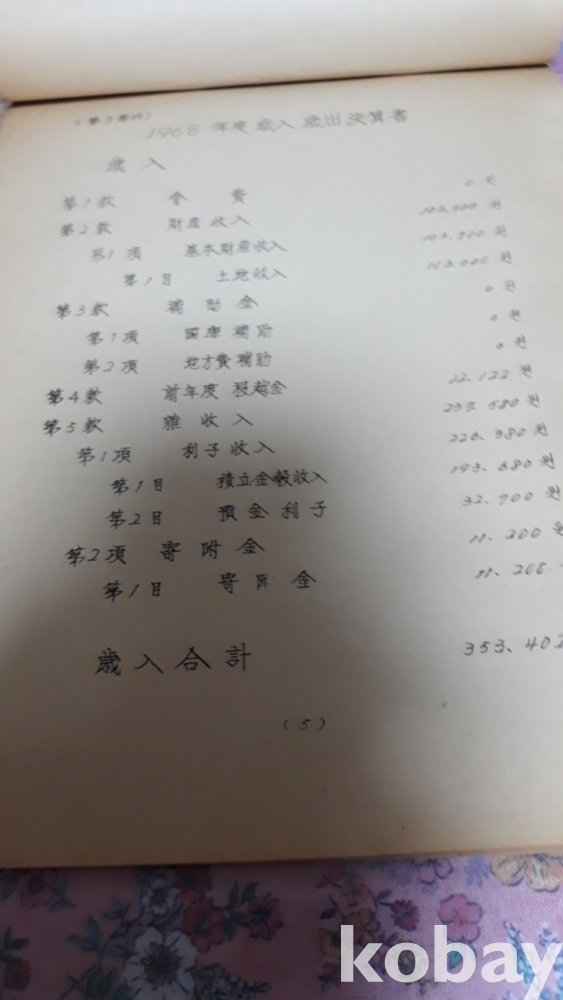 1968 年度 歳入 歳出 決算書
歳入
第1款 會費 0 원
第2款 財産收入 원
第1項 基本財産收入 원
第1目 土地收入 원
第3款 補助金 0 원
第1項 国庫補助 0 원
第2項 地方費補助 0 원
第4款 前年度 越金 12.122 원
第5款 雜收入 원
第1項 利子收入 원
第1目 積立金穀收入 원
第2目 預金利子 32.900 원
第2項 寄附金 11.200 원
第1目 寄附金 11.200 원
歳入合計 353.402
(5)
kobay